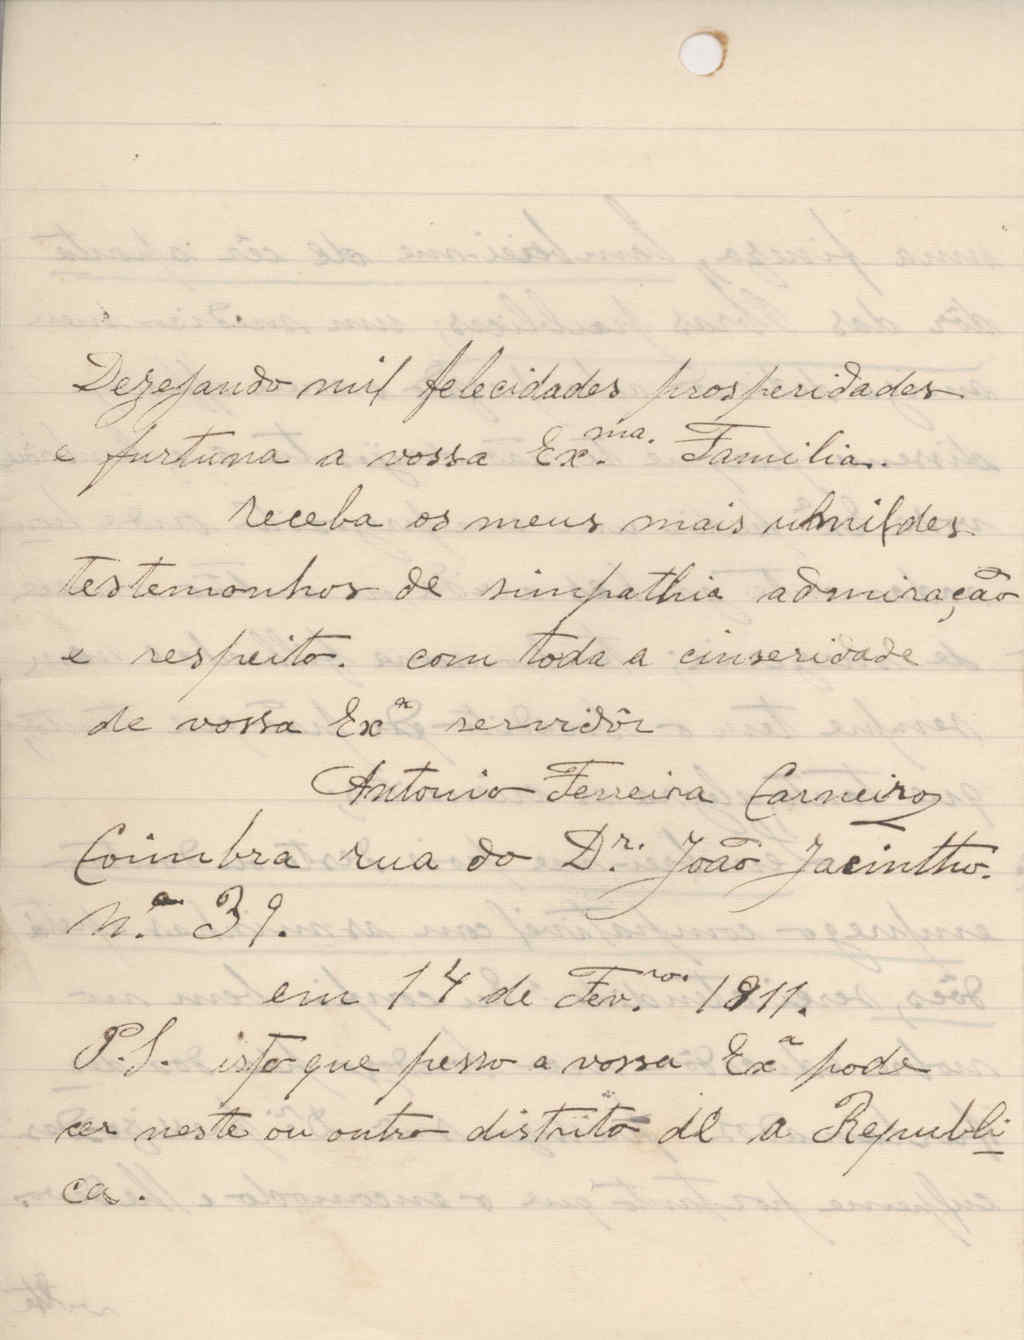 Dezejando mil felecidades prosperidades
e furtuna a vossa Ex.ma. Familia.
receba os meus mais uhmildes
testemonhos de simpathia admiração
e respeito. com toda a cinseridade
de vossa Exª servidôr
Antonio Ferreira Carneiro
Coimbra rua do Dr. João Jacintho.
N.º 39.
em 14 de Fev.ro. 1911.
P.S. isto que pesso a vossa Exª pode
cer neste ou outro distrito de a Republi
ca.